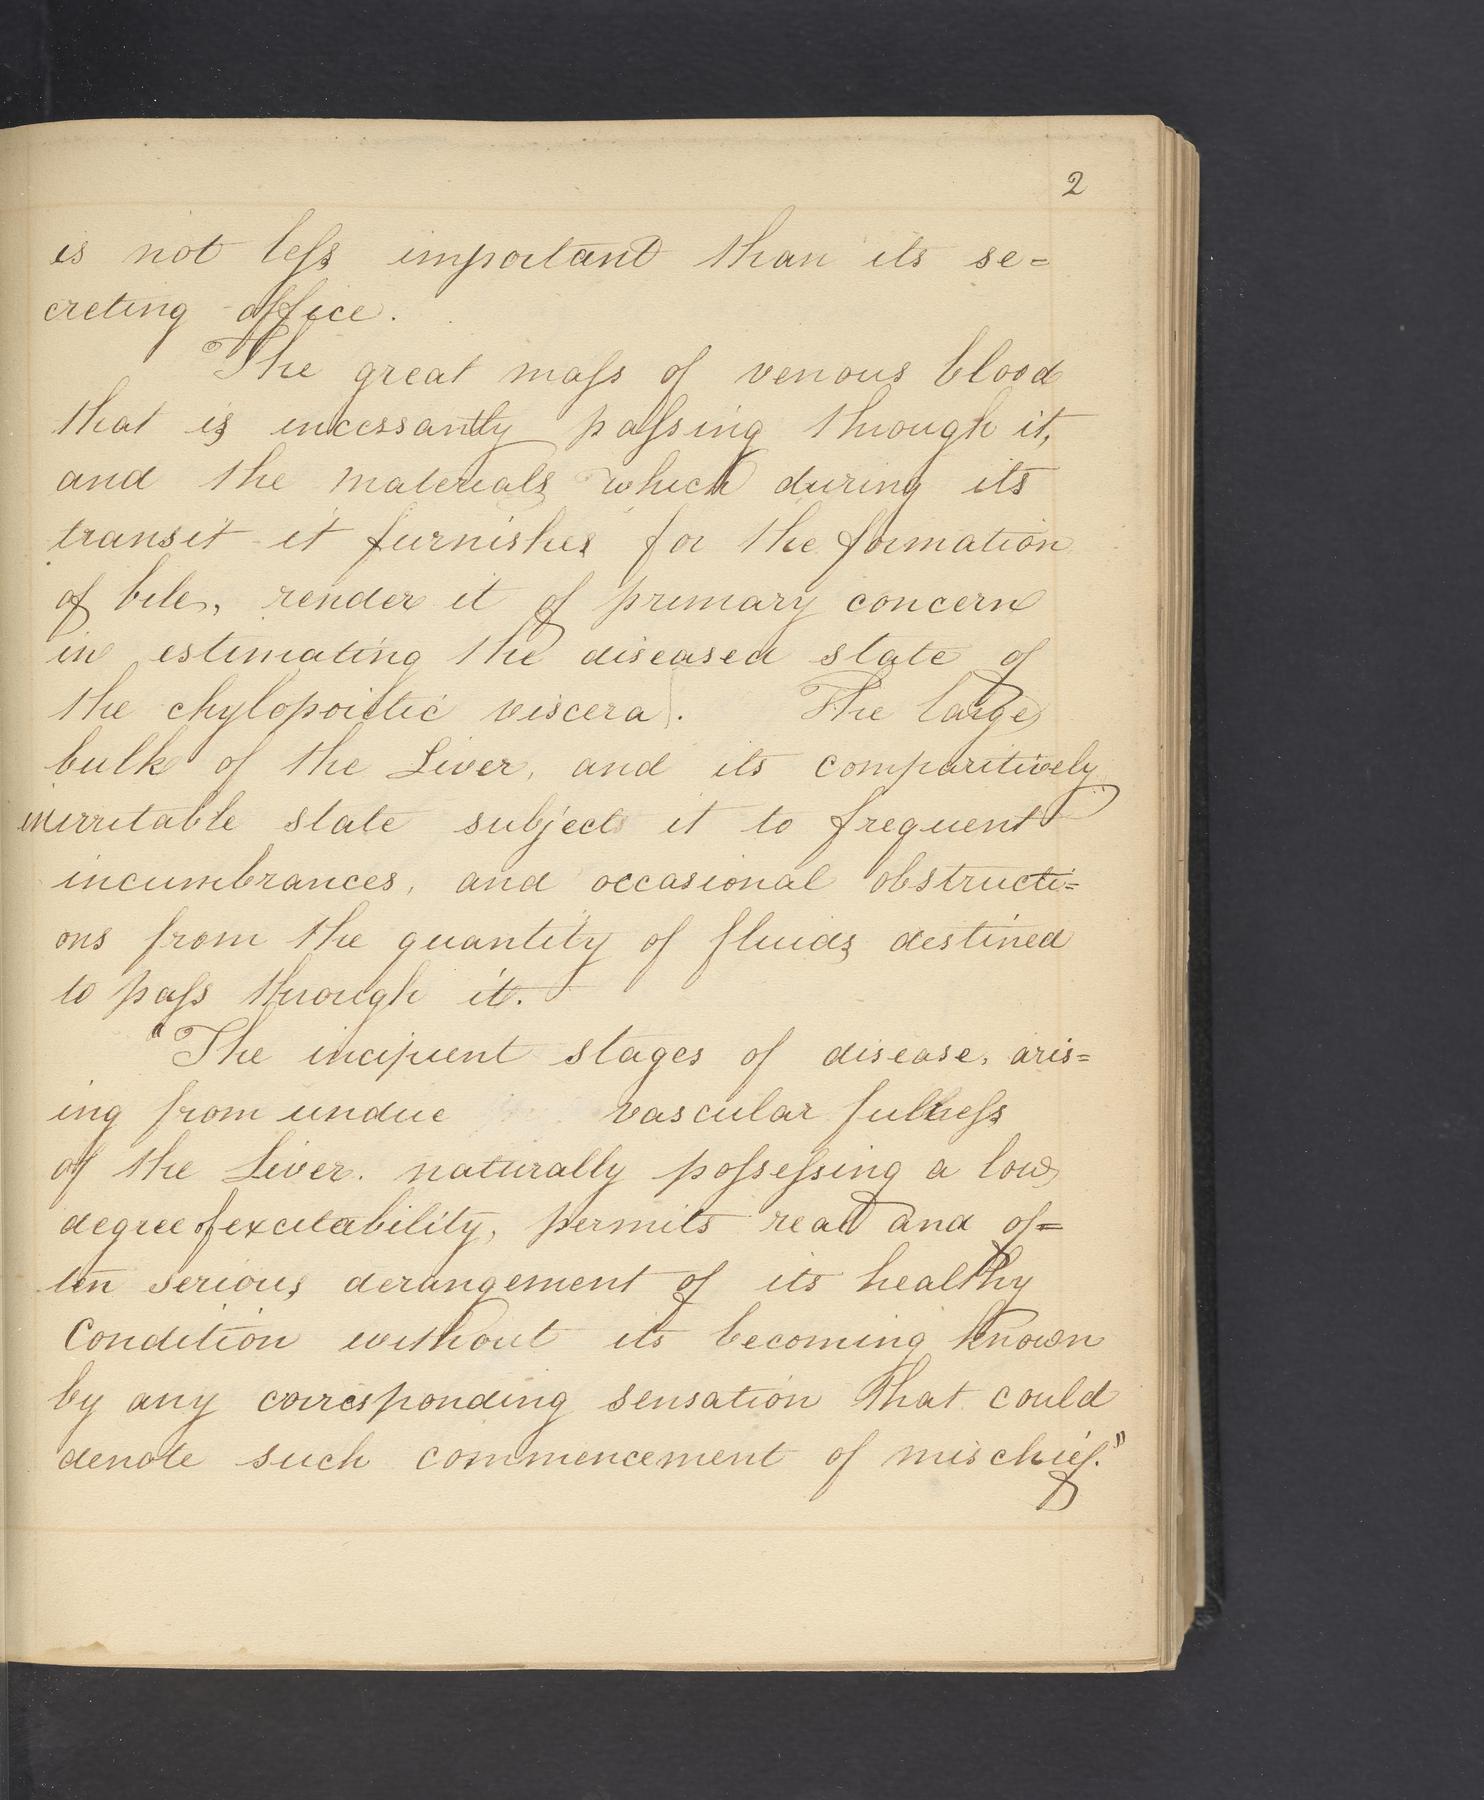 2
is not leſs important than its se=
creting office.
The great maſs of venous blood
that is incessantly paſsing through it,
and the materials which during its
transit it furnishes for the formation
of bile, render it of primary concern
in estimating the diseased state of
the chylopoiitic viscera. The large
bulk of the Liver, and its comparitively
inirritable state subjects it to frequent
incumbrances, and occasional obstructi=
ons from the quantity of fluids destined
to paſs through it.
"The incipient stages of disease, aris=
ing from undue vascular fullneſs
of the Liver. naturally poſseſsing a low
degree of excitability, permits real and of=
ten serious derangement of its healthy
condition without its becoming known
by any corresponding sensation that could
denote such commencement of mischief."